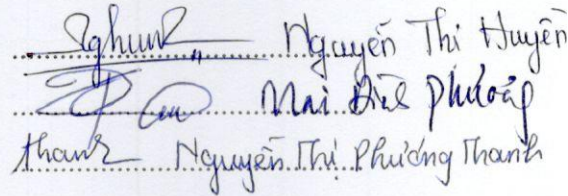 Nguyễn Thị Huyền
Mai Đình Phương
thanh Nguyễn Thị Phương Thanh